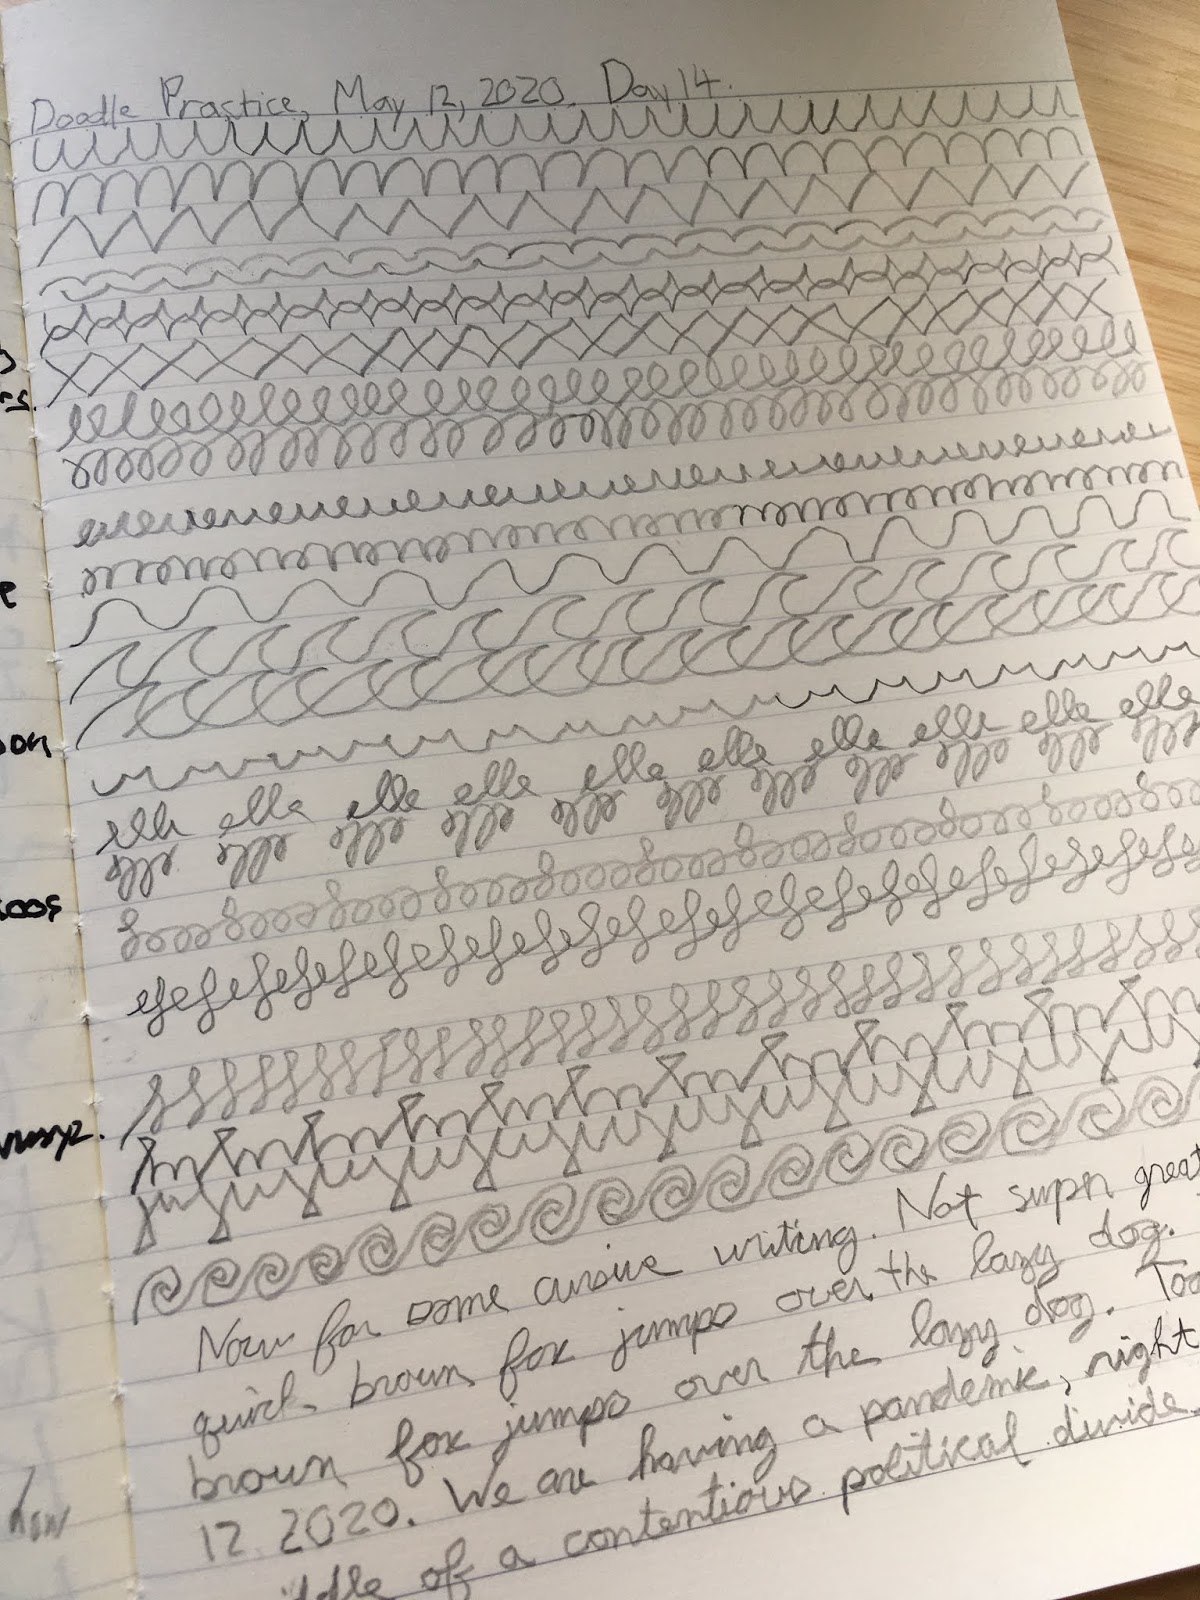 Doodle Practice, May 12, 2020. Day 14.
elle elle elle elle elle elle elle elle elle elle
Now for some cursive writing. Not supn great
quick brown fox jumps over the lazy dog.
brown fox jumps over the lazy dog. Too
12 2020. We are having a pandemic, right
of a contentious political divide.
now